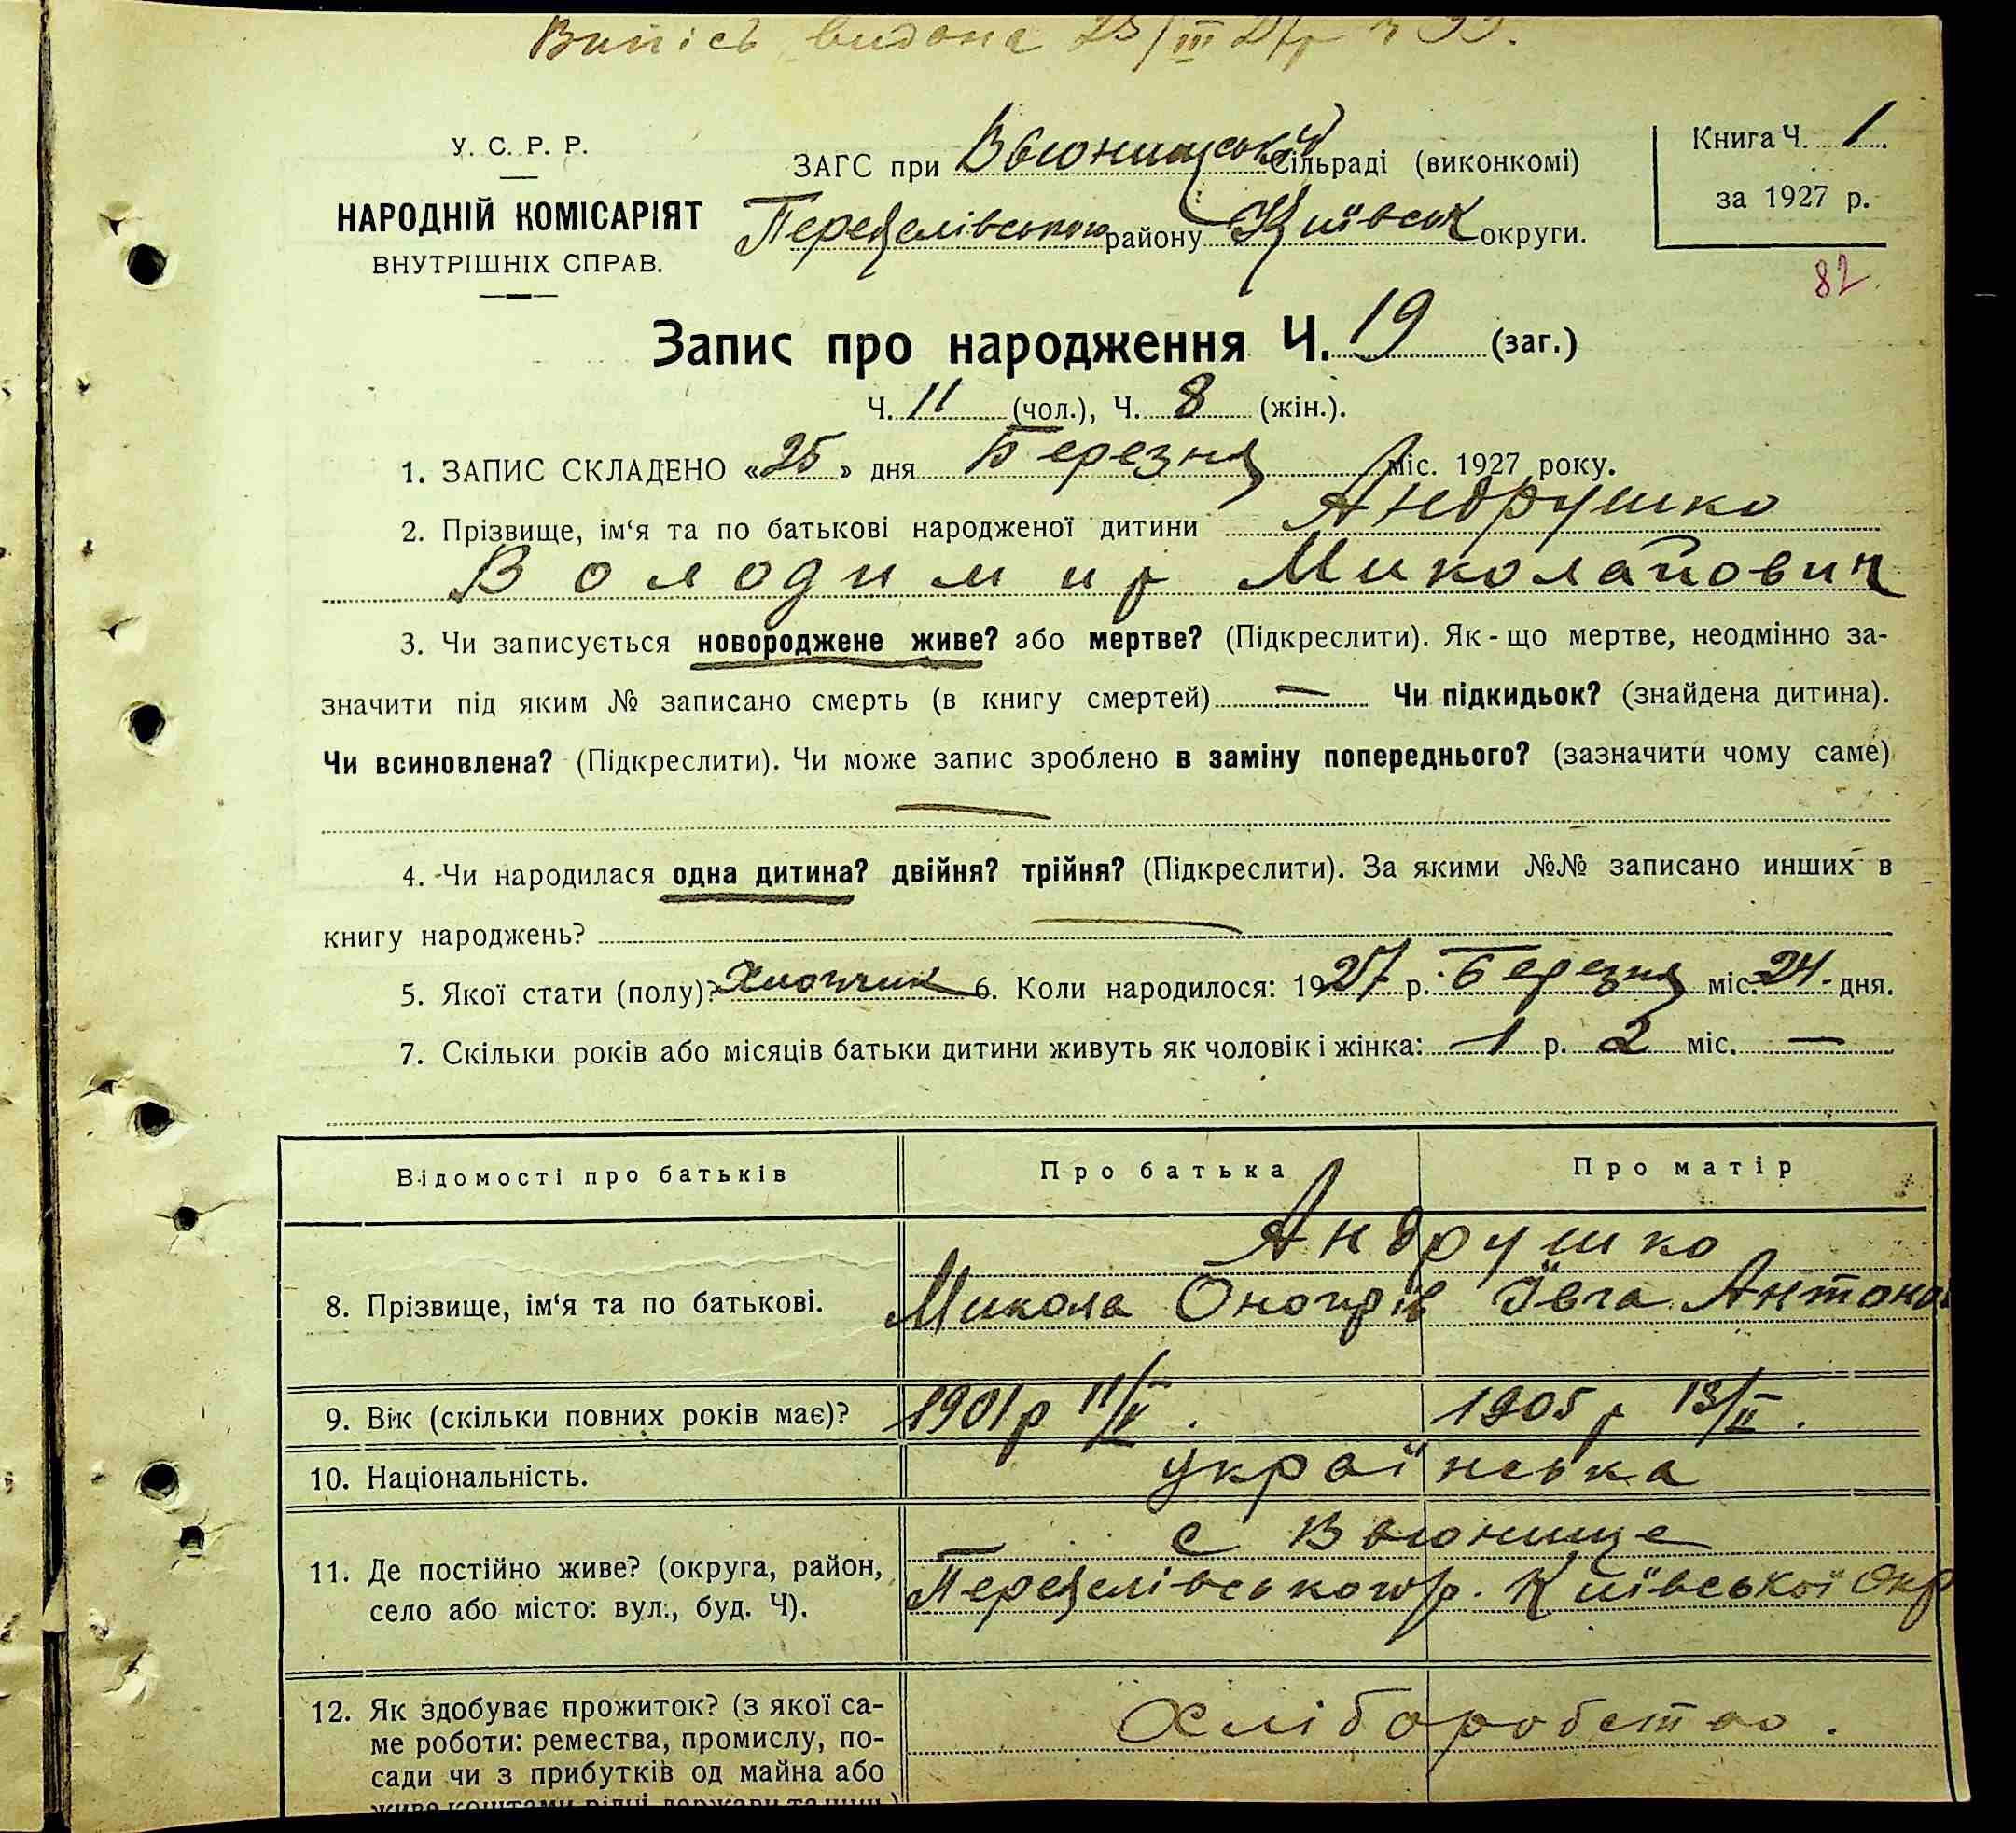 Випісь видана 25/III 27р
У. С. Р. Р.
НАРОДНІЙ КОМІСАРІЯТ
ВНУТРІШНІХ СПРАВ.
ЗАГС при Вьюнищській Сільраді (виконкомі)
Переяслівського району Київськ округи.
Книга Ч. 1
за 1927 р.
82
Запис про народження Ч. 19 (заг.)
Ч. 11 (чол.), Ч. 8 (жін.).
1. ЗАПИС СКЛАДЕНО «25» дня Березня міс. 1927 року.
2. Прізвище, ім‘я та по батькові народженої дитини Андрушко
Володимир Миколайович
3. Чи записується новороджене живе? або мертве? (Підкреслити). Як-що мертве, неодмінно за-
значити під яким № записано смерть (в книгу смертей) — Чи підкидьок? (знайдена дитина).
Чи всиновлена? (Підкреслити). Чи може запис зроблено в заміну попереднього? (зазначити чому саме)
—
4. Чи народилася одна дитина? двійня? трійня? (Підкреслити). За якими №№ записано инших в
книгу народжень? —
5. Якої стати (полу)? Хлопчик 6. Коли народилося: 1927 р. Березня міс. 24 дня.
7. Скільки років або місяців батьки дитини живуть як чоловік і жінка: 1 р. 2 міс. —
Відомості про батьків Про батька Про матір
Андрушко
8. Прізвище, ім‘я та по батькові. Микола Онопрів Івга Антонов
9. Вік (скільки повних років має)? 1901р 11/V. 1905 р 13/II.
10. Національність. українська
с Вьюнище
11. Де постійно живе? (округа, район, Переяслівського р. Київської Окр
село або місто: вул., буд. Ч).
12. Як здобуває прожиток? (з якої са- Хліборобство.
ме роботи: ремества, промислу, по-
сади чи з прибутків од майна або
живе коштами рідні держави та инш.)